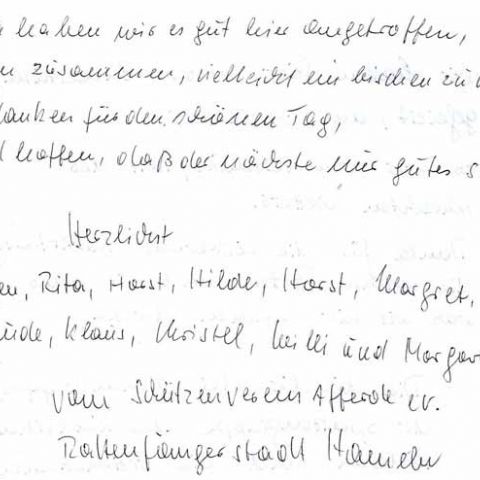 haben wir es gut hier angetroffen,
zusammen, vielleicht ein bischen zu
danken für den schönen Tag,
hoffen, daß der nächste nur gutes
Herzlichst
Rita, Horst, Hilde, Horst, Margret,
Klaus, Christel, Willi und Margar
vom Schützenverein Afferde e.V.
Rattenfängerstadt Hameln